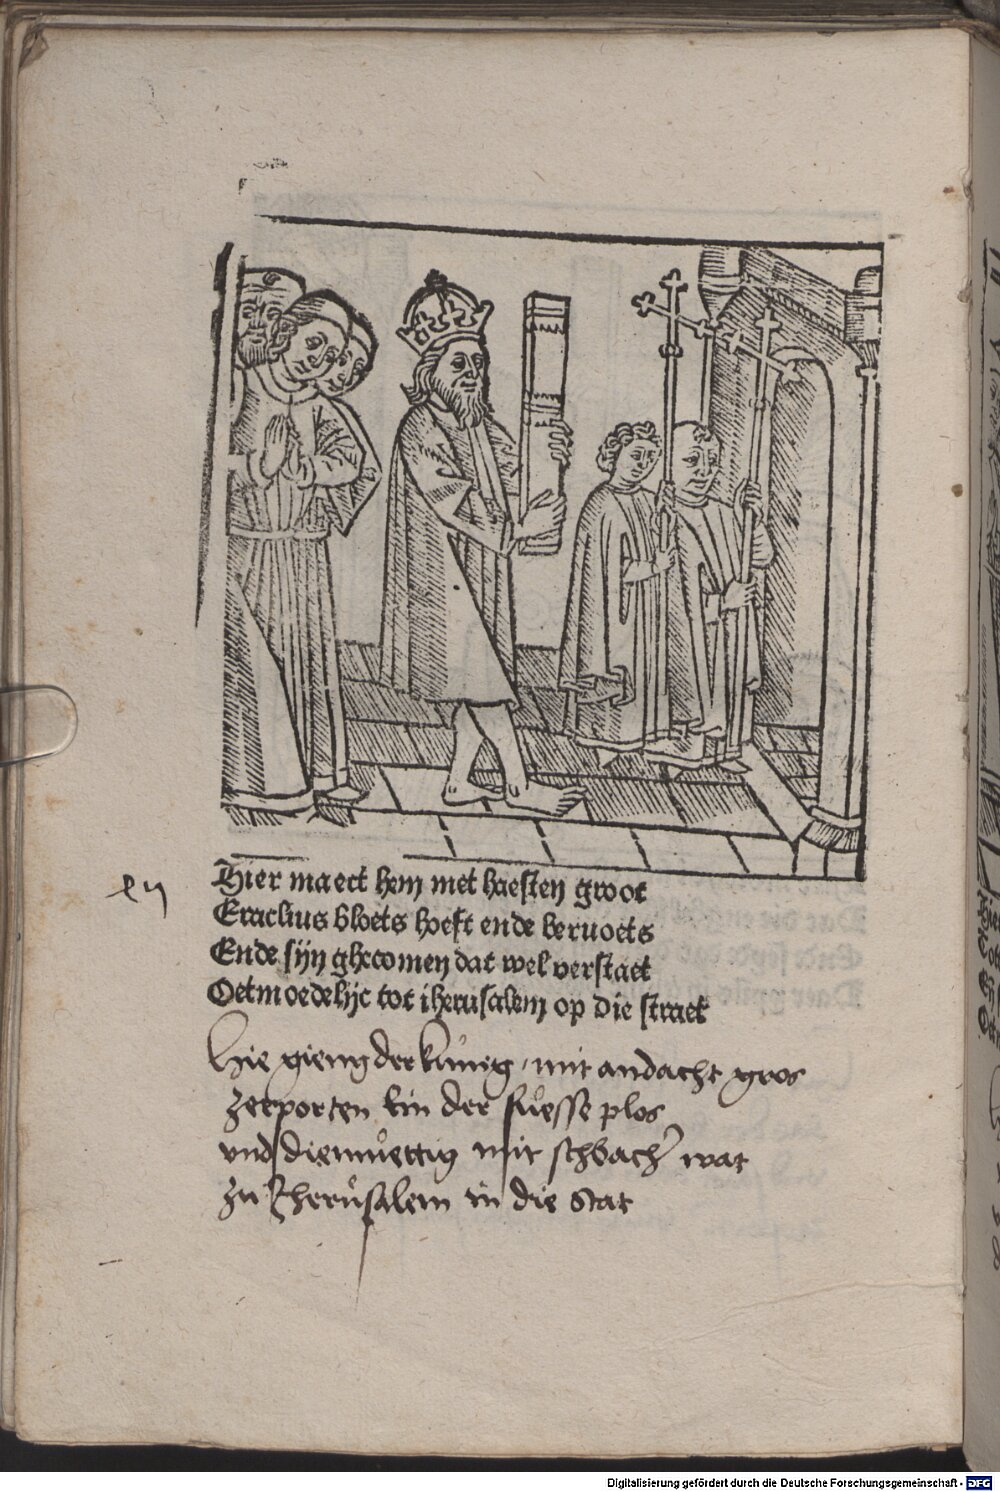 Hier maect hem met haesten groot
Eraclius bloets hoeft ende beruoets
Ende sijn ghecomen dat wel verstaet
Oetmoedelijc tot iherusalem op die straet
Hie gieng der künig / mit andacht gros
zer porten ein der füesse plos
vnd diemüettig mit wat
zu Jherusalem in die Stat
Digitalisierung gefördert durch die Deutsche Forschungsgemeinschaft - DFG